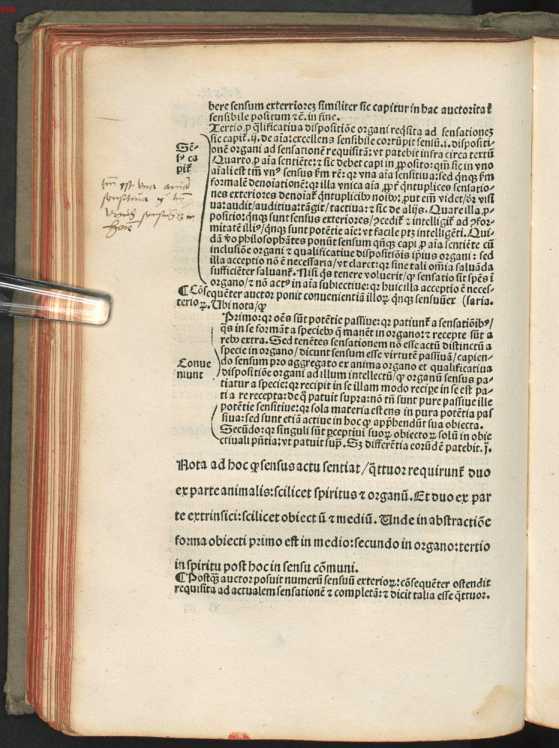 bere sensum exterriorez similiter sic capitur in hac auctoritate
sensibile positum ⁊cͥ. in fine.
Tertio ꝓ q̄lificatiua dispositiōe organi reqͥsita ad sensationez
sic capit᷑. ij. de aīa: excellens sensibile corrūpit sensū .i. dispositi-
onē organi ad sensationē requisitā: vt patebit infra circa textū
Quarto ꝓ aīa sentiēte: ⁊ sic debet capi in ꝓposito: qm̄ sic in vno
aīali est tm̄ vnꝰ sensus ẜm rē: qꝛ vna aīa sensitiua: sed qn̄qꝫ ẜm
formalē denoīationē: qꝛ illa vnica aīa ꝓpt̄ qn̄tuplices sensatio-
nes exteriores denoīat᷑ qn̄tuplicibꝰ noībꝰ: put em̄ videt/dꝛ visi
ua: audit/auditiua: tāgit/tactiua: ⁊ sic de alijs. Quare illa ꝓ-
positio: qn̄qꝫ sunt sensus exteriores/ꝯcedit᷑ ⁊ intelligit᷑ ad ꝯfor-
mitatē illiꝰ/qn̄qꝫ sunt potētie aīe: vt facile pt̄ intelligēti. Qui-
dā ꝟo philosophātes ponūt sensum qn̄qꝫ capi ꝓ aīa sentiēte cū
inclusiōe organi ⁊ qualificatiue dispositiōis ipsius organi: sed
illa acceptio nō ē necessaria/vt claret: qꝛ sine tali om̄ia saluāda
sufficiēter saluant᷑. Nisi qͥs tenere voluerit/ꝙ sensatio sit spēs ī
organo/⁊ nō actꝰ in aīa subiectiue: qꝛ huic illa acceptio ē neces-
saria.
¶ Cōsequēter auctor ponit conuenientiā illoꝝ qn̄qꝫ sensuū ex
terioꝝ. Ubi nota/ꝙ
Sē-
sꝰ ca
pit᷑
tm̄ est vna anima
sensitiua
Primo: qꝛ oēs sūt potētie passiue: qꝛ patiunt᷑ a sensatiōibꝰ/
qͣs in se format a speciebꝰ q̄ manēt in organo: ⁊ recepte sūt a
rebꝰ extra. Sed tenētes sensationem nō esse actū distinctū a
specie in organo/dicunt sensum esse virtutē passiuā/capien-
do sensum pro aggregato ex anima organo et qualificatiua
dispositiōe organi ad illum intellectū/ꝙ organū sensus pa-
tiatur a specie: qꝛ recipit in se illam modo recipe in se est pa-
ti a re recepta: de q̄ patuit supra: nō tn̄ sunt pure passiue ille
potētie sensitiue: qꝛ sola materia est ens in pura potētia pas
siua: sed sunt etiā actiue in hoc ꝙ app̄hendūt sua obiecta.
Secūdo: qꝛ singuli sūt ꝑceptiui suoꝝ obiectoꝝ solū in obie
ctiuali pn̄tia: vt patuit supͣ. Sꝫ differētia eorūdē patebit. j.
Conue
niunt
Nota ad hoc ꝙ sensus actu sentiat/q̄ttuor requirunt᷑ duo
ex parte animalis: scilicet spiritus ⁊ organū. Et duo ex par
te extrinsici: scilicet obiectū ⁊ mediū. Unde in abstractiōe
forma obiecti primo est in medio: secundo in organo: tertio
in spiritu post hoc in sensu cōmuni.
¶ Postqͣꝫ auctor posuit numerū sensuū exterioꝝ: cōsequēter ostendit
requisita ad actualem sensationē ⁊ completā: ⁊ dicit talia esse q̄ttuor.